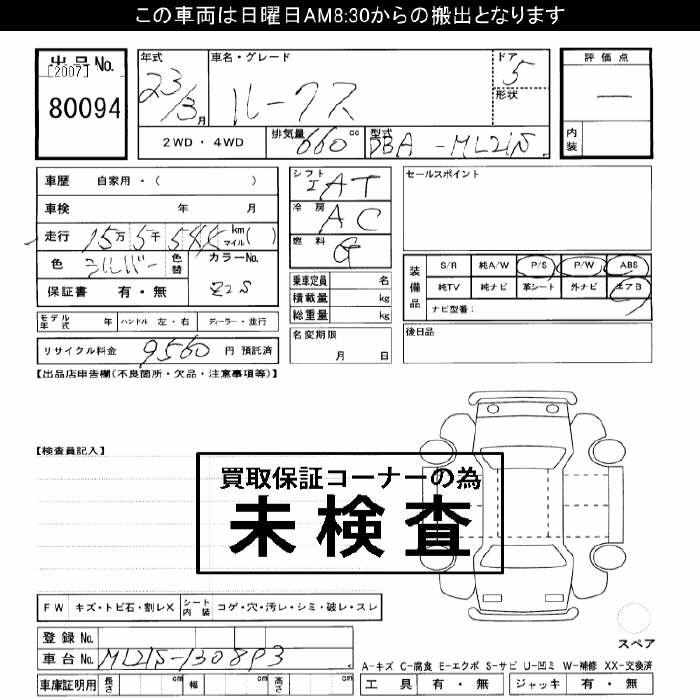 この車両は日曜日AM8:30からの搬出となります
出品No.
[2007]
80094
年式 23/3月
車名・グレード ルークス
ドア 5
形状
評価点 —
内装
2WD・4WD 排気量 660cc 型式 DBA-ML21S
車歴 自家用・( )
車検 年 月
走行 15万5千 km マイル( )
色 シルバー 色替 カラーNo. Z2S
保証書 有・無
シフト AT
冷房 AC
燃料 G
乗車定員 名
積載量 kg
総重量 kg
セールスポイント
装備品 S/R 純A/W P/S P/W ABS
純TV 純ナビ 革シート 外ナビ エアB
ナビ型番:
モデル年式 年 ハンドル 左・右 ディーラー・並行
リサイクル料金 9560 円 預託済
名変期限 月 日
後日品
【出品店申告欄(不良箇所・欠品・注意事項等)】
【検査員記入】
買取保証コーナーの為
未検査
FW キズ・トビ石・割レX シート内装 コゲ・穴・汚レ・シミ・破レ・スレ
スペア
登録No.
車台No. ML21S-130893
A-キズ C-腐食 E-エクボ S-サビ U-凹ミ W-補修 XX-交換済
車庫証明用 長さ cm 幅 cm 高さ cm
工具 有・無 ジャッキ 有・無